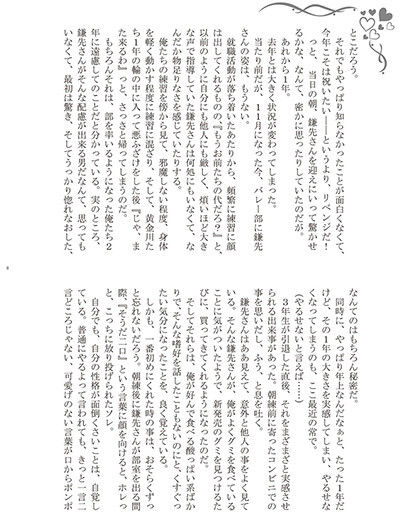 とこだろう。
それでもやっぱり知らなかったことが面白くなくて、
今年こそは祝いたい――というより、リベンジだ！
っと、当日の朝、鎌先さんを迎えにいって驚かせ
るかな、なんて、密かに思ったりしていたのだが。
あれから１年。
去年とは大きく状況が変わってしまった。
当たり前だが、１１月になった今、バレー部に鎌先
さんの姿は、もうない。
就職活動が落ち着いたあたりから、頻繁に練習に顔
は出してくれるものの『もうお前たちの代だろ？』と、
以前のように自分にも他人にも厳しく、煩いほど大き
な声で指導していた鎌先さんは何処にもいなくて、な
んだか物足りなさを感じていたりする。
俺たちの練習を傍から見て、邪魔しない程度、身体
を軽く動かす程度に練習に混ざり、そして、黄金川た
ち１年の輪の中に入って悪ふざけをした後『じゃ、ま
た来るわ』っと、さっさと帰ってしまうのだ。
もちろんそれは、部を率いるようになった俺たち２
年に遠慮してのことだと分かっている。実のところ、
鎌先さんがそんな配慮が出来る男だなんて、思っても
いなくて、最初は驚き、そしてうっかり惚れなおした、
なんてのはもちろん秘密だ。
同時に、やっぱり年上なんだなぁと、たった１年だ
けど、その１年の大きさを実感してしまい、やるせな
くなってしまうのも、ここ最近の常で。
（やるせないと言えば……）
３年生が引退した直後、それをまざまざと実感させ
られる出来事があった。朝練前に寄ったコンビニでの
事を思いだし、ふう、と息を吐く。
鎌先さんはああ見えて、意外と他人の事をよく見て
いる。そんな鎌先さんが、俺がよくグミを食べている
ことに気がついたようで、新発売のグミを見つけるた
びに、買ってきてくれるようになったのだ。
そしてそれらは、俺が好んで食べる酸っぱい系ばか
りで、そんな嗜好を話したこともないのにと、くすぐっ
たい気分になったことを、良く覚えている。
しかも、一番初めにくれた時の事は、おそらくずっ
と忘れないだろう。朝練後に鎌先さんが部室を出る間
際、『そうだ二口』という言葉に顔を向けると、ホレっ
と、こっちに放り投げられたソレ。
自分でも、自分の性格が面倒くさいことは、自覚し
ている。普通にやるよって言われても、きっと一言二
言どころじゃない、可愛げのない言葉が口からポンポ